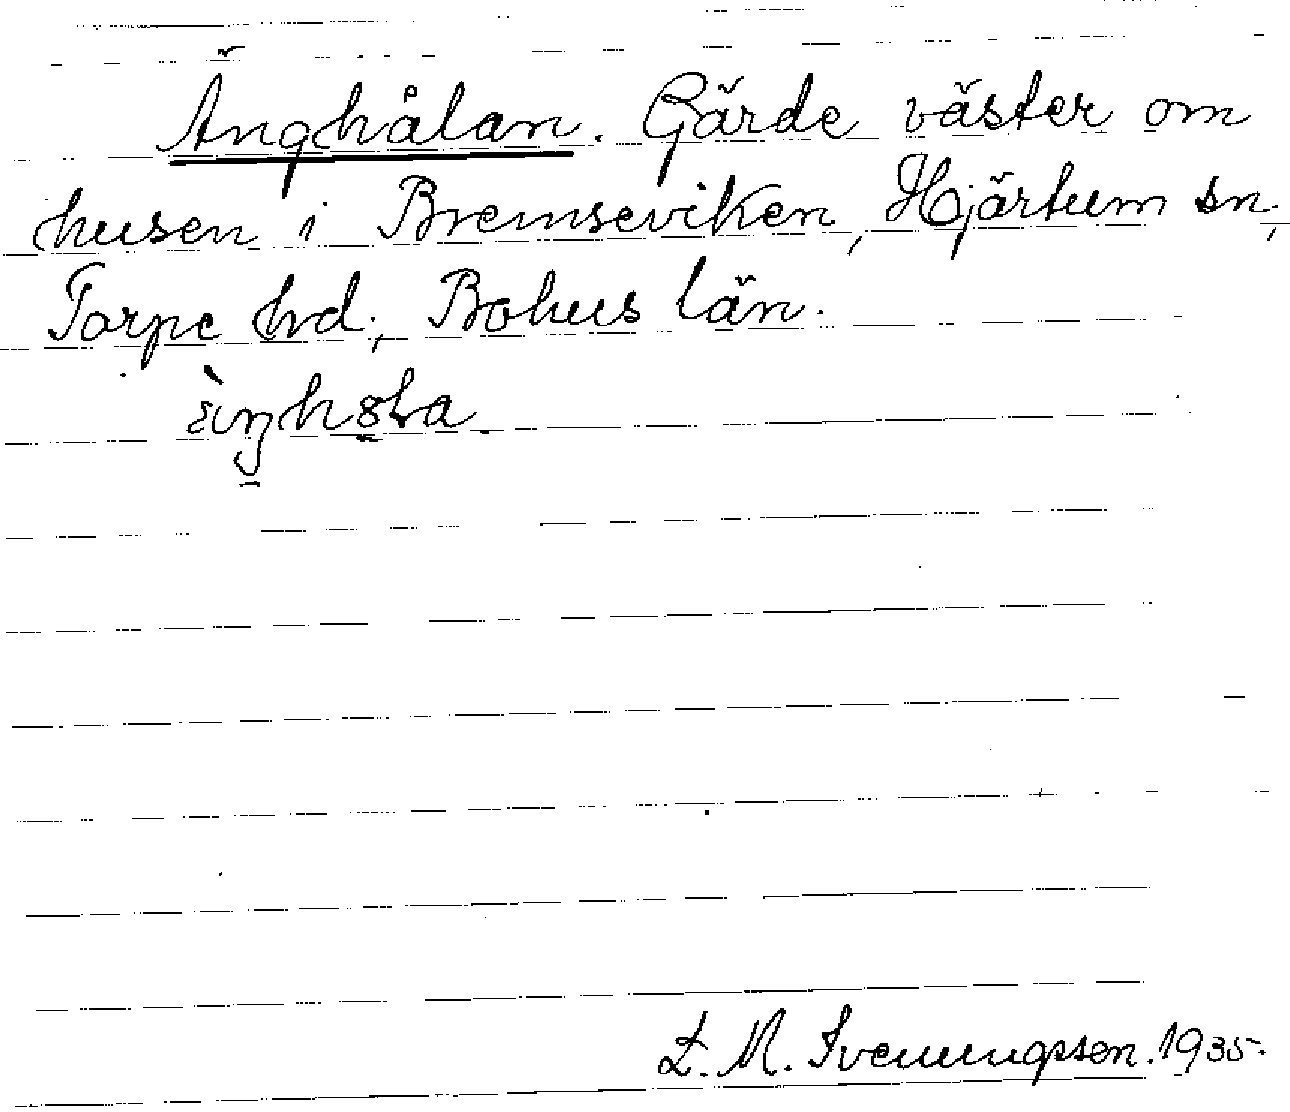 Änghålan. Gärde väster om
husen i Bremseviken, Hjärtum sn.,
Torpe hd., Bohus län.
L. M. Svenungsson. 1935.